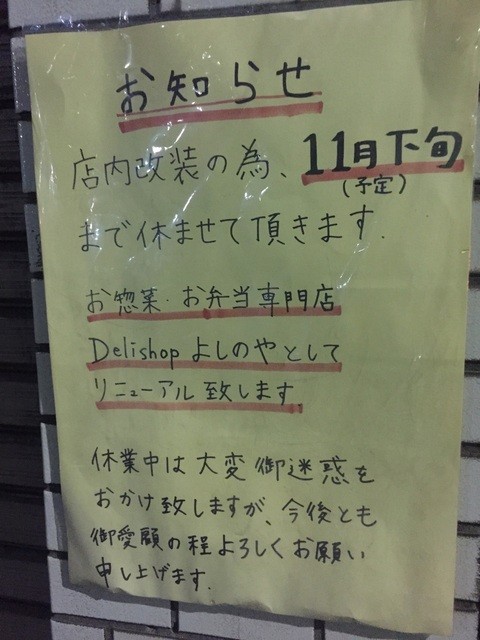 お知らせ
店内改装の為、11月下旬
(予定)
まで休ませて頂きます.
お惣菜・お弁当専門店
Delishop よしのやとして
リニューアル致します
休業中は大変御迷惑を
おかけ致しますが、今後とも
御愛顧の程よろしくお願い
申し上げます.